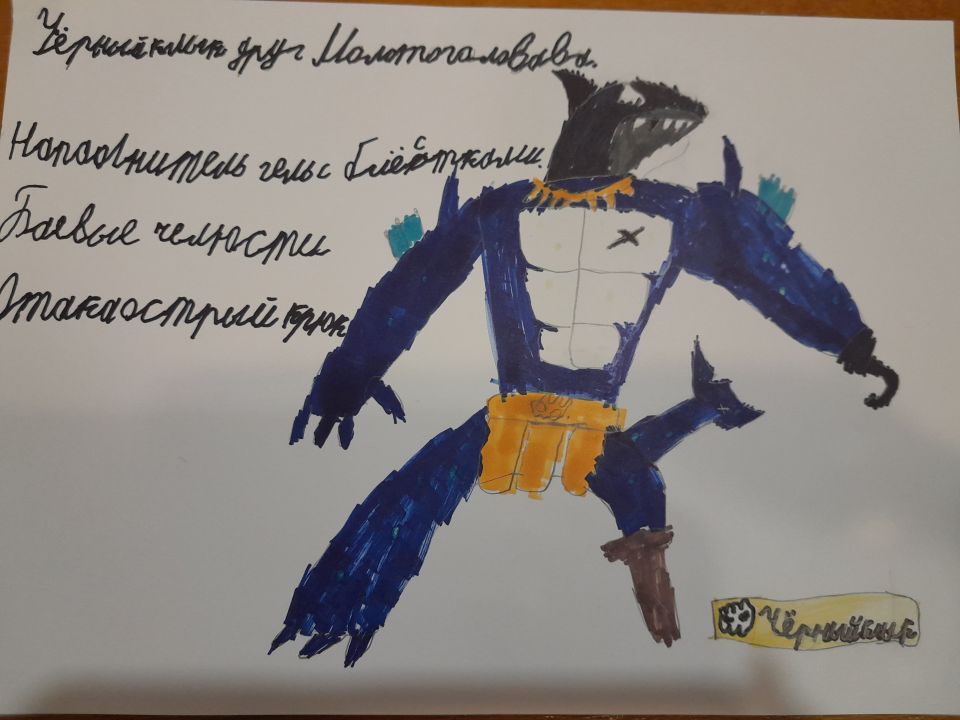 Чёрныйклык друг Молотоголовава.
Наролнитель гель с блёстками.
Боевые челюсти
Атакаострый крюк
Чёрныйклык